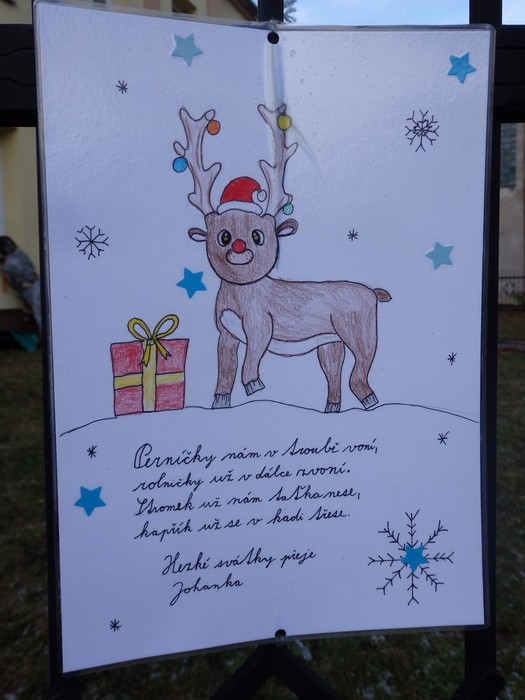 Perníčky nám v troubě voní,
rolničky už v dálce zvoní.
Stromek už nám taťka nese,
kapřík už se v kadi třese.
Hezké svátky přeje
Johanka